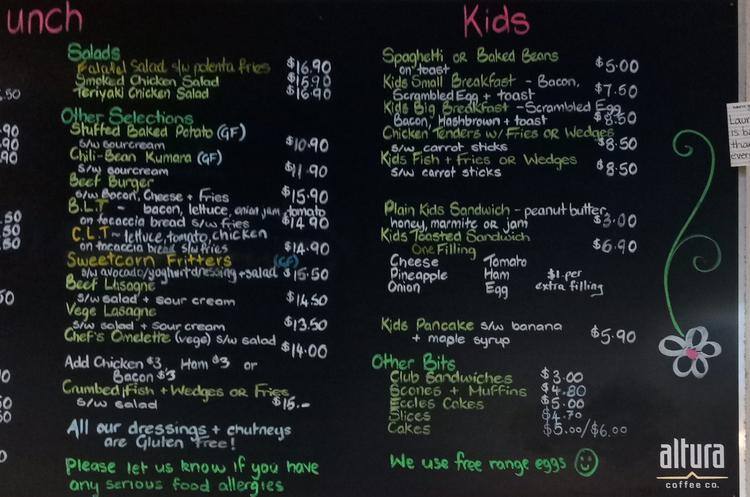 unch
Salads
Falafel Salad s/w polenta fries $16.90
Smoked Chicken Salad $15.90
Teriyaki Chicken Salad $16.90
Other Selections
Stuffed Baked Potato (GF)
s/w sourcream $10.90
Chili-Bean Kumara (GF)
s/w sourcream $11.90
Beef Burger
s/w Bacon, Cheese + Fries $15.90
B.L.T - bacon, lettuce, onion jam, tomato
on focaccia bread s/w fries $14.90
C.L.T ~ lettuce, tomato, chicken
on focaccia bread s/w fries $14.90
Sweetcorn Fritters (GF)
s/w avocado/yoghurt dressing + salad $15.50
Beef Lasagne
s/w salad + sour cream $14.50
Vege Lasagne
s/w salad + sour cream $13.50
Chef's Omelette (vege) s/w salad $14.00
Add Chicken $3, Ham $3 or
Bacon $3
Crumbed Fish + Wedges or Fries
s/w salad $16.-
All our dressings + chutneys
are Gluten Free!
Please let us know if you have
any serious food allergies
Kids
Spaghetti or Baked Beans
on toast $5.00
Kids Small Breakfast - Bacon,
Scrambled Egg + toast $7.50
Kids Big Breakfast - Scrambled Egg
Bacon, Hashbrown + toast $8.50
Chicken Tenders w/ Fries or Wedges
s/w carrot sticks $8.50
Kids Fish + Fries or Wedges
s/w carrot sticks $8.50
Plain Kids Sandwich - peanut butter,
honey, marmite or jam $3.00
Kids Toasted Sandwich
One Filling $6.90
Cheese Tomato
Pineapple Ham $1 per
Onion Egg extra filling
Kids Pancake s/w banana
+ maple syrup $5.90
Other Bits
Club Sandwiches $3.00
Scones + Muffins $4.80
Eccles Cakes $5.00
Slices $4.70
Cakes $5.00/$6.00
We use free range eggs
altura
coffee co.